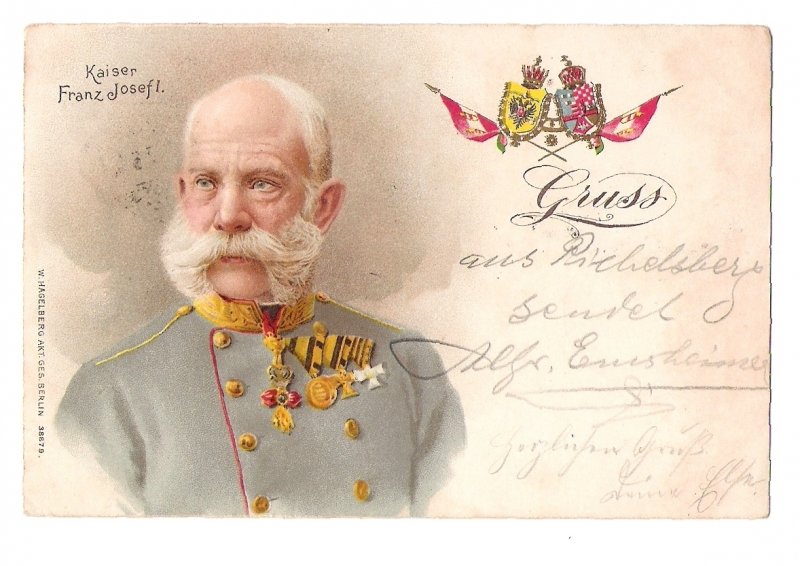 Kaiser
Franz Josef I.
Gruss
aus Richelsberg
sendet
Alfr. Emsheimer
Herzlichen Gruß
Deine Else.
W. HAGELBERG AKT. GES. BERLIN 38679.